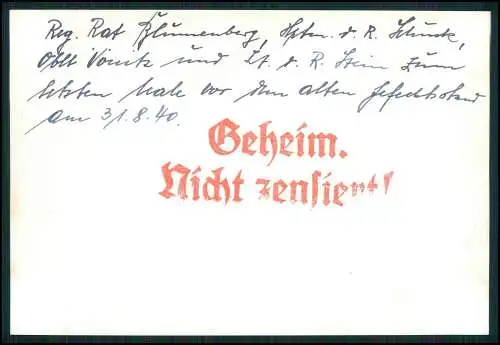 Reg. Rat Blumenberg, Hptm. d. R. Schunk,
Oblt Vonitz und Lt. d. R. Stein zum
letzten Male vor dem alten Gefechtsstand
am 31.8.40.
Geheim.
Nicht zensiert!